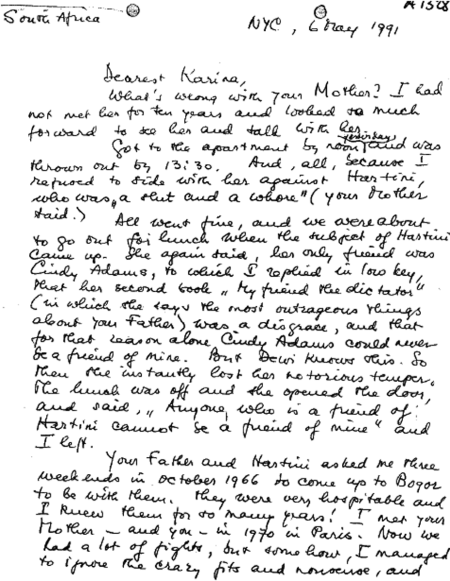 A1578
South Africa
NYC, 6 May 1991
Dearest Karina,
What's wrong with your Mother? I had
not met her for ten years and looked so much
forward to see her and talk with her.
Got to the apartment by noon yesterday and was
thrown out by 13:30. And, all, because I
refused to side with her against Hartini,
who was „a slut and a whore" (your Mother
said.)
All went fine, and we were about
to go out for lunch when the subject of Hartini
came up. She again said, her only friend was
Cindy Adams, to which I replied in low key,
that her second book „My friend the dictator"
(in which she says the most outrageous things
about your Father) was a disgrace, and that
for that reason alone Cindy Adams could never
be a friend of mine. But Dewi knows this. So
then she instantly lost her notorious temper.
The lunch was off and she opened the door,
and said, „Anyone, who is a friend of
Hartini cannot be a friend of mine" and
I left.
Your Father and Hartini asked me three
weekends in October 1966 to come up to Bogor
to be with them. They were very hospitable and
I knew them for so many years! I met your
Mother – and you – in 1970 in Paris. Now we
had a lot of fights, but somehow, I managed
to ignore the crazy fits and nonsense, and